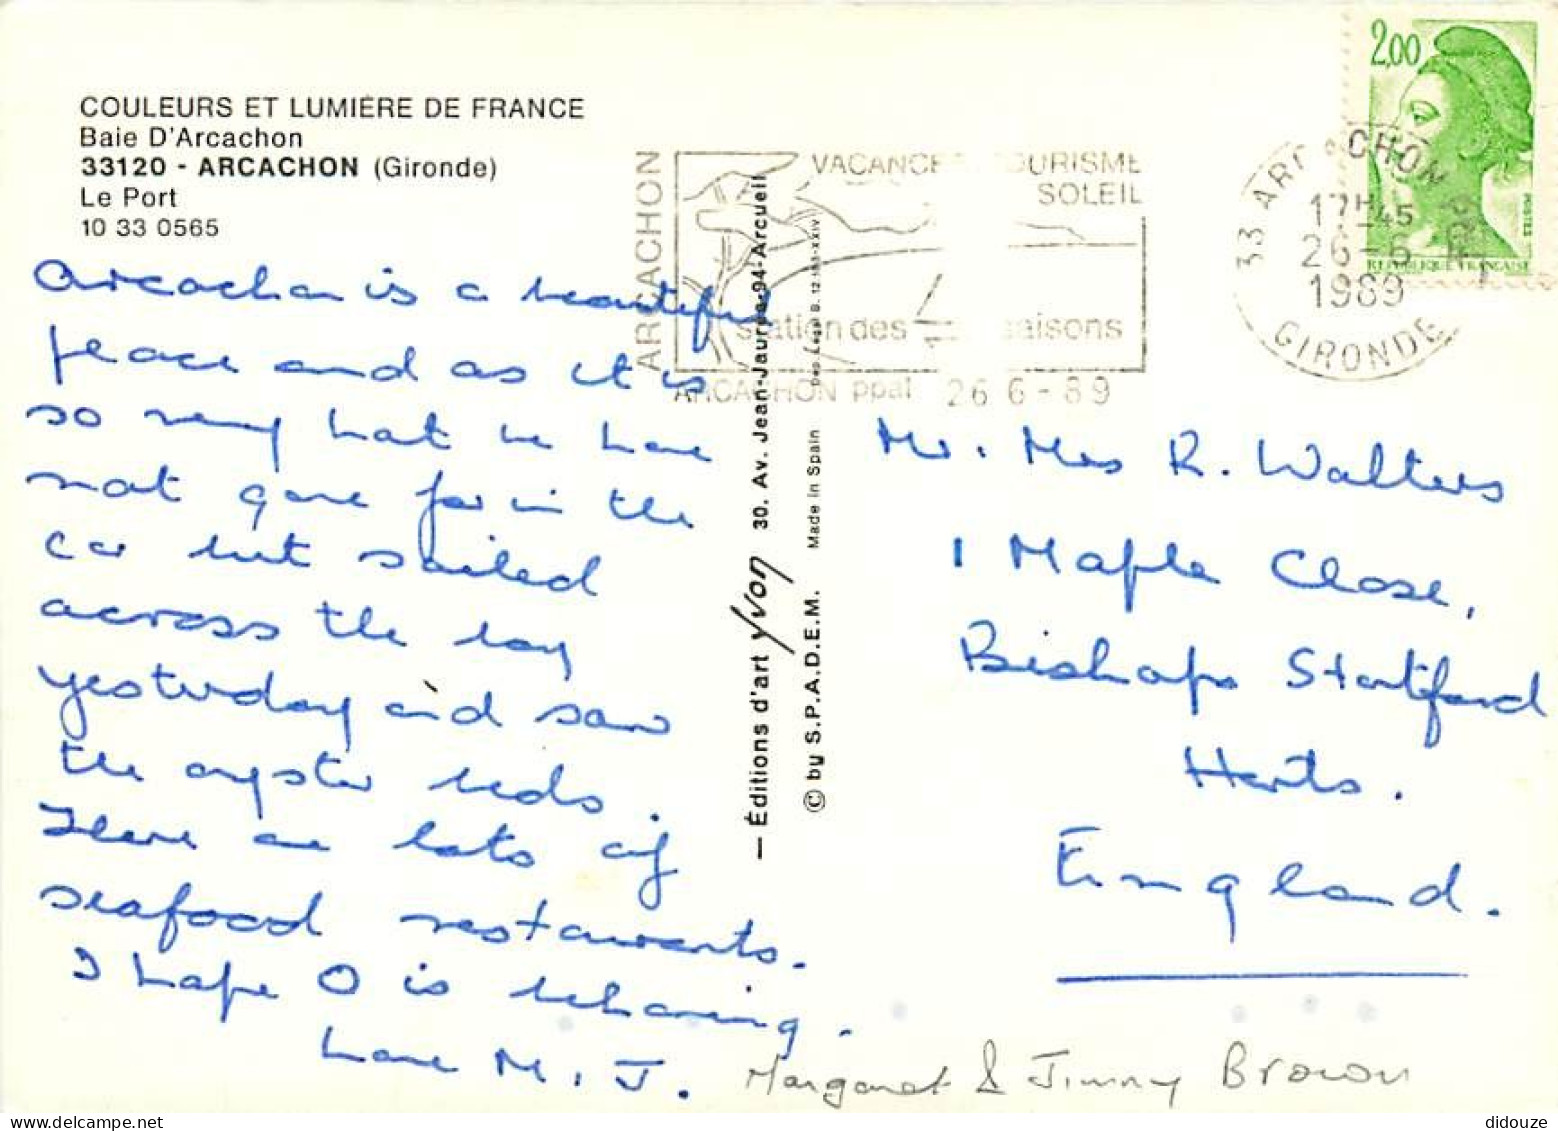 COULEURS ET LUMIÈRE DE FRANCE
Baie D'Arcachon
33120 - ARCACHON (Gironde)
Le Port
10 33 0565
Arcachon is a beautiful
place and as it is
so very hot we have
not gone far in the
car but sailed
across the bay
yesterday and saw
the oyster beds.
There are lots of
seafood restaurants.
I hope O is behaving.
Love M. J.
Margaret & Jimmy Brown
— Éditions d'art Yvon 30. Av. Jean-Jaurès-94-Arcueil
© by S.P.A.D.E.M. Made in Spain
ARCACHON
VACANCES TOURISME
SOLEIL
station des saisons
ARCACHON ppal 26 6 - 89
33 ARCACHON
17H45
26-6
1989
GIRONDE
2,00
POSTES
REPUBLIQUE FRANÇAISE
Mr. Mrs R. Walters
1 Maple Close,
Bishops Stortford
Herts.
England.
didouze